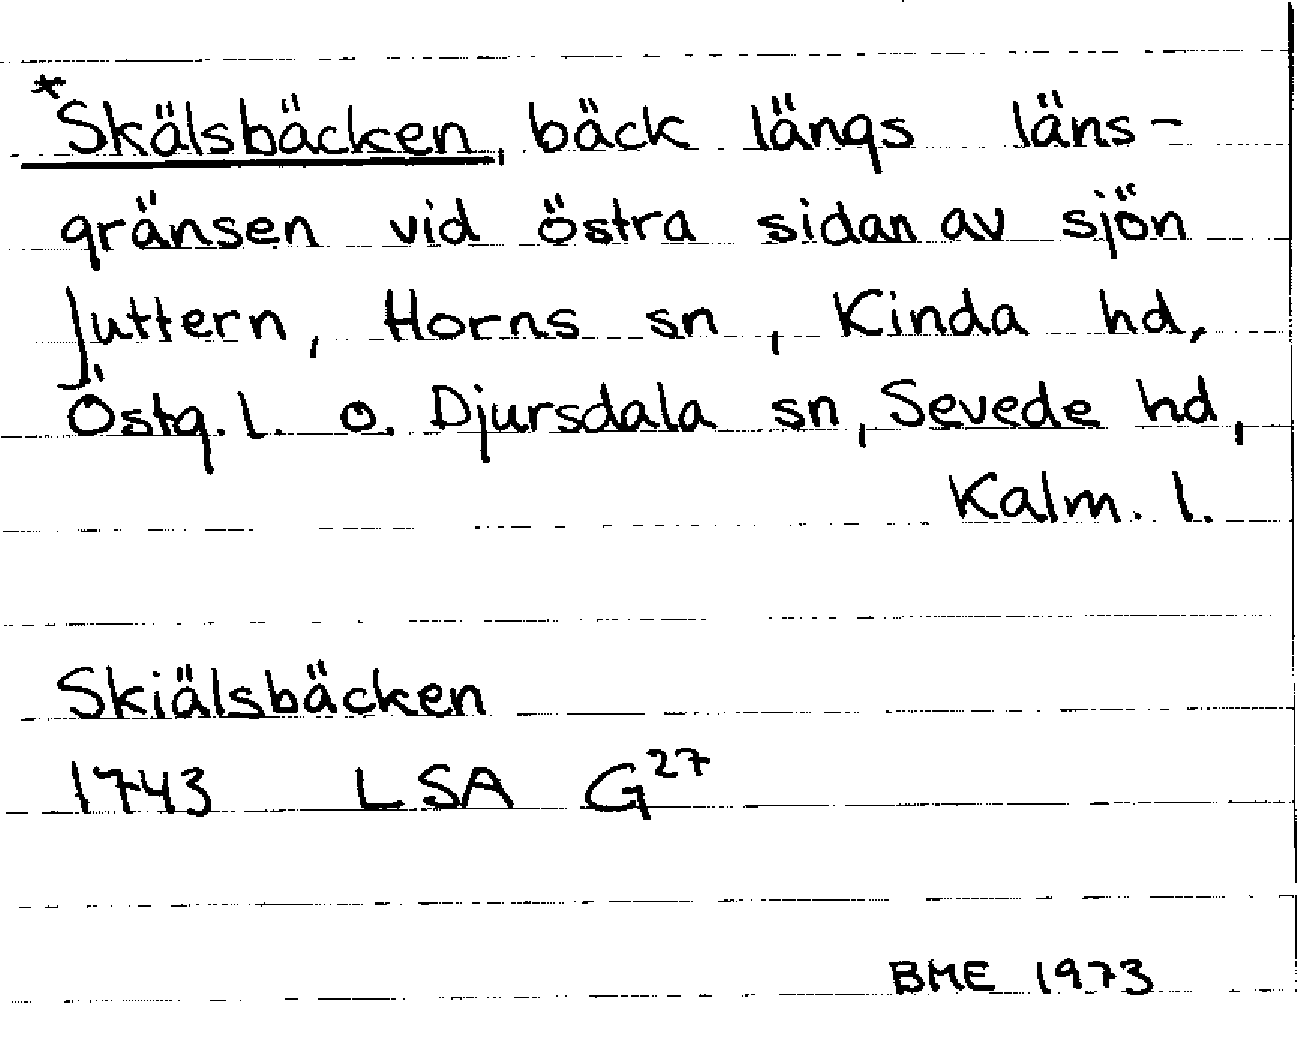 *Skälsbäcken, bäck längs läns-
gränsen vid östra sidan av sjön
Juttern, Horns sn, Kinda hd,
Östg. l. o. Djursdala sn, Sevede hd,
Kalm. l.
Skiälsbäcken
1743 LSA G27
BME 1973